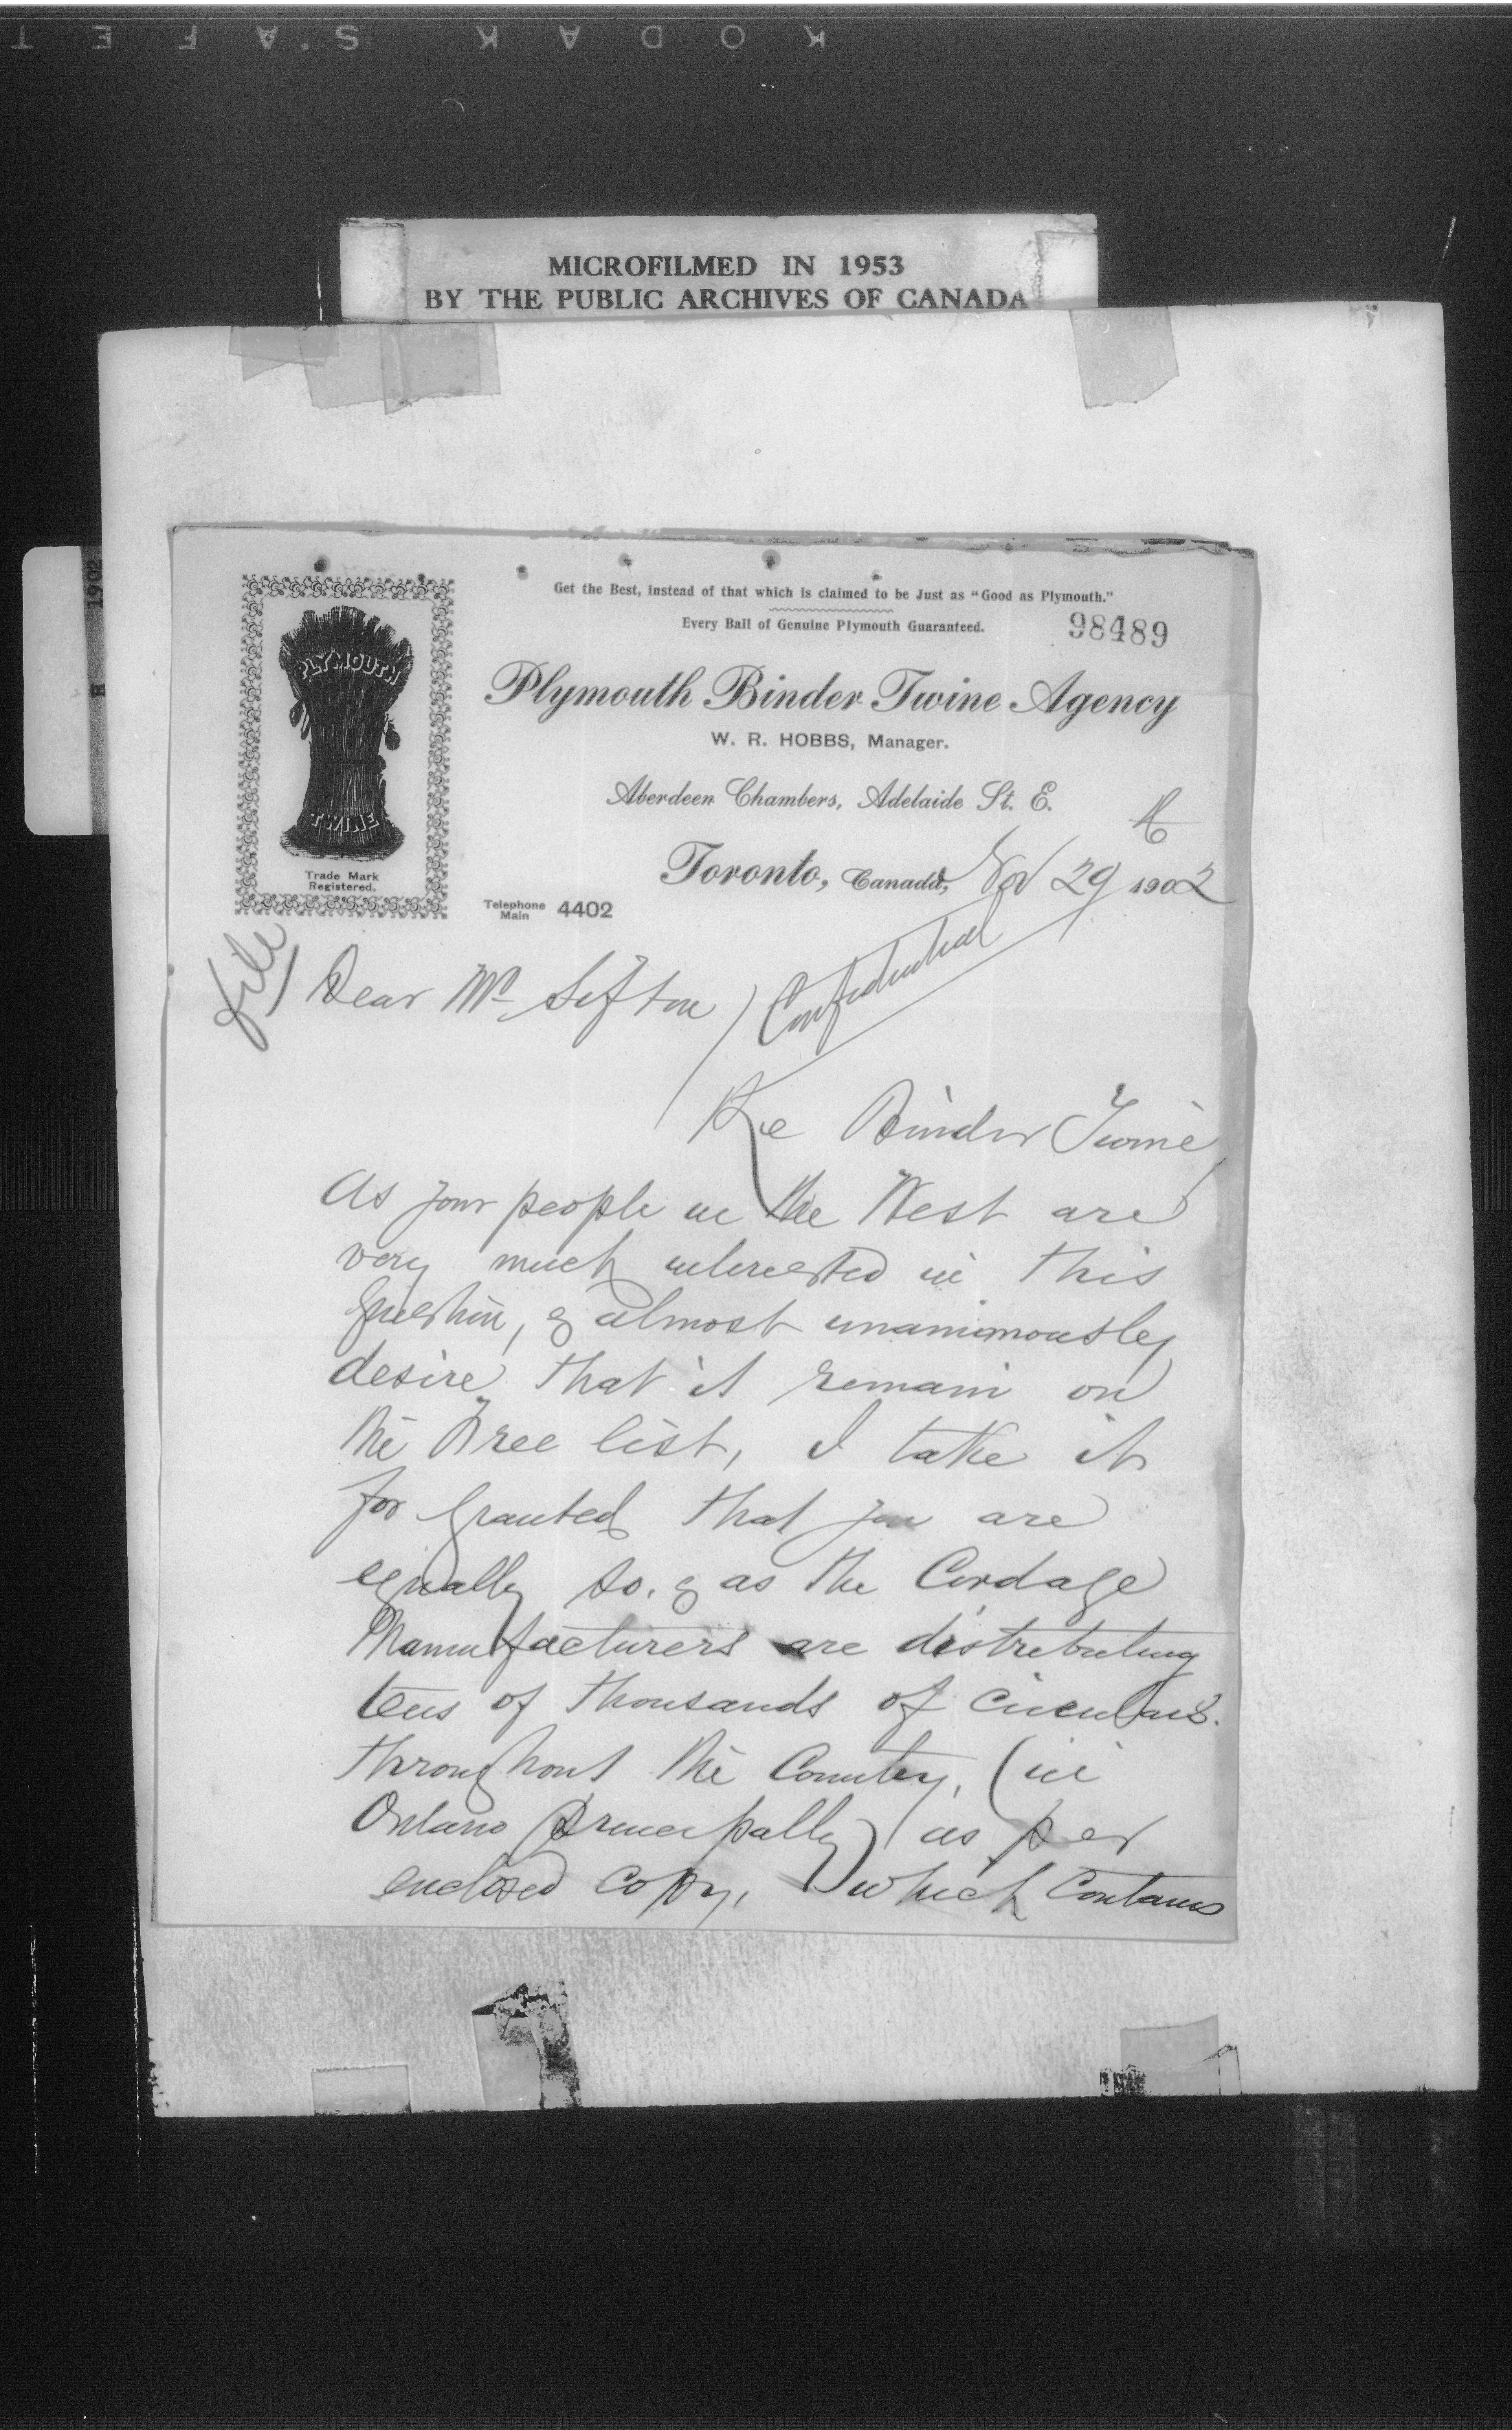 KODAK S.A.FET
MICROFILMED IN 1953
BY THE PUBLIC ARCHIVES OF CANADA
1902
H
Get the Best, instead of that which is claimed to be Just as "Good as Plymouth."
Every Ball of Genuine Plymouth Guaranteed.
98489
PLYMOUTH
TWINE
Trade Mark
Registered.
Plymouth Binder Twine Agency
W. R. HOBBS, Manager.
Aberdeen Chambers, Adelaide St. E.
H
Toronto, Canada, Nov 29 1902
Telephone
Main 4402
file
Dear Mr Sifton
Confidential
Re Binder Twine
As your people in the West are
very much interested in this
question, & almost unanimously
desire that it remain on
the Free list, I take it
for granted that you are
equally so. & as the Cordage
Manufacturers are distributing
tens of thousands of circulars.
throughout the Country, (in
Ontario principally) as per
enclosed copy, which contains